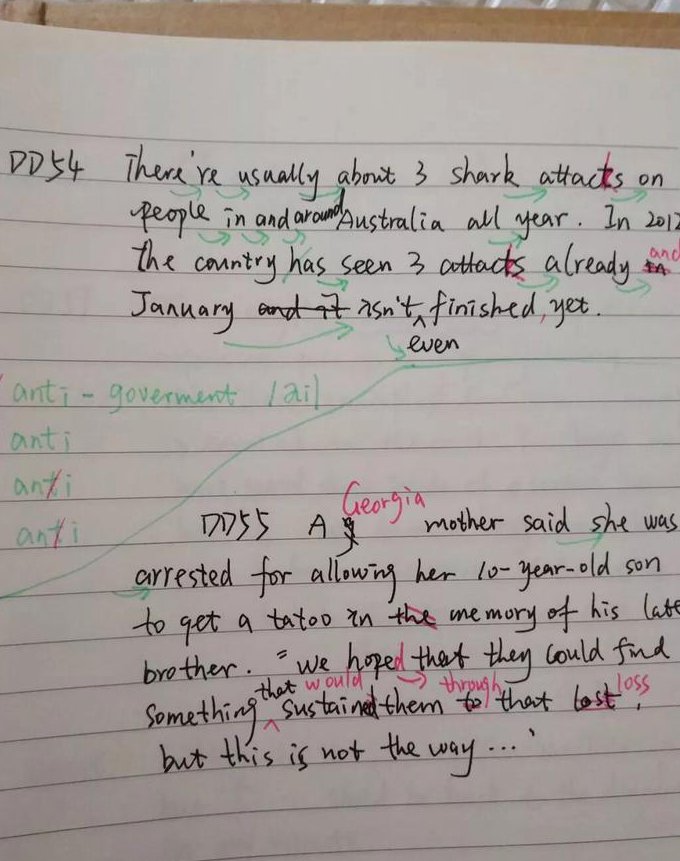 DD54 There're usually about 3 shark attacks on
people in and around Australia all year. In 2012
the country has seen 3 attacks already in and
January and it isn't finished, yet.
even
anti - goverment /ai/
anti
anti
anti
DD55 A Georgia mother said she was
arrested for allowing her 10-year-old son
to get a tatoo in the memory of his late
brother. "we hoped that they could find
that would through loss
something sustained them to that lost,
but this is not the way ..."